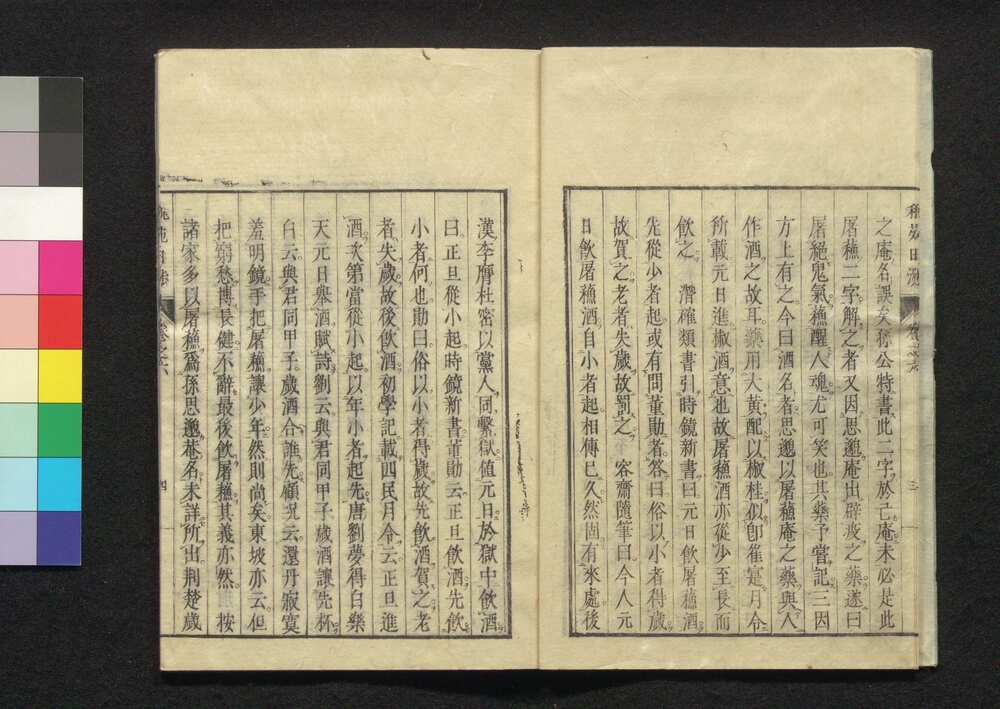 之庵名誤矣孫公特書此二字於己庵未必是此
屠蘓二字解之者又因思邈庵出辟疫之藥遂曰
屠絕鬼氣蘓醒人魂尤可笑也其藥予嘗記三因
方上有之今曰酒名者思邈以屠蘓庵之藥與人
作酒之故耳藥用大黃配以椒桂似卽崔寔月令
所載元日進椒酒意也故屠蘓酒亦從少至長而
飲之　潛確類書引時鏡新書曰元日飲屠蘓酒
先從少者起或有問董勛者答曰俗以小者得歲
故賀之老者失歲故罰之　容齋隨筆曰今人元
日飲屠蘓酒自小者起相傳已久然固有來處後
三
漢李膺杜密以黨人同繫獄值元日於獄中飲酒
曰正旦從小起時鏡新書董勛云正旦飲酒先飲
小者何也勛曰俗以小者得歲故先飲酒賀之老
者失歲故後飲酒初學記載四民月令云正旦進
酒次第當從小起以年小者起先唐劉夢得白樂
天元日舉酒賦詩劉云與君同甲子歲酒讓先杯
白云與君同甲子歲酒合誰先顧況云還丹寂寞
羞明鏡手把屠蘓讓少年然則尚矣東坡亦云但
把窮愁博長健不辭最後飲屠蘓其義亦然　按
諸家多以屠蘓爲孫思邈菴名未詳所出荆楚歲
四